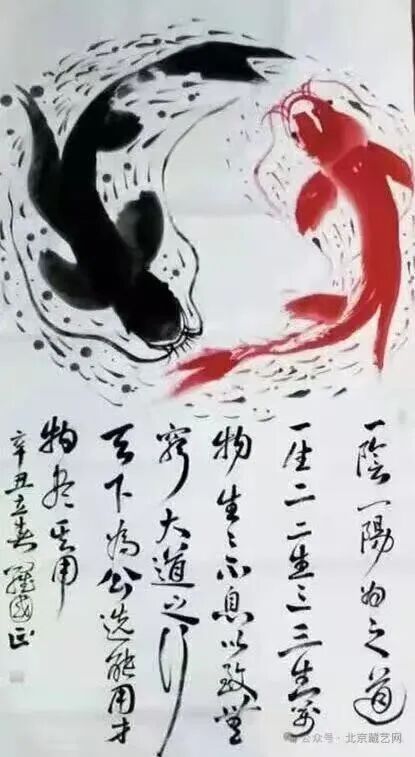 一陰一陽為之道
一生二二生三三生萬
物生生不息以致無
窮大道之行
天下為公选能用才
物尽其用
辛丑立春羅國正
公众号·北京藏艺网